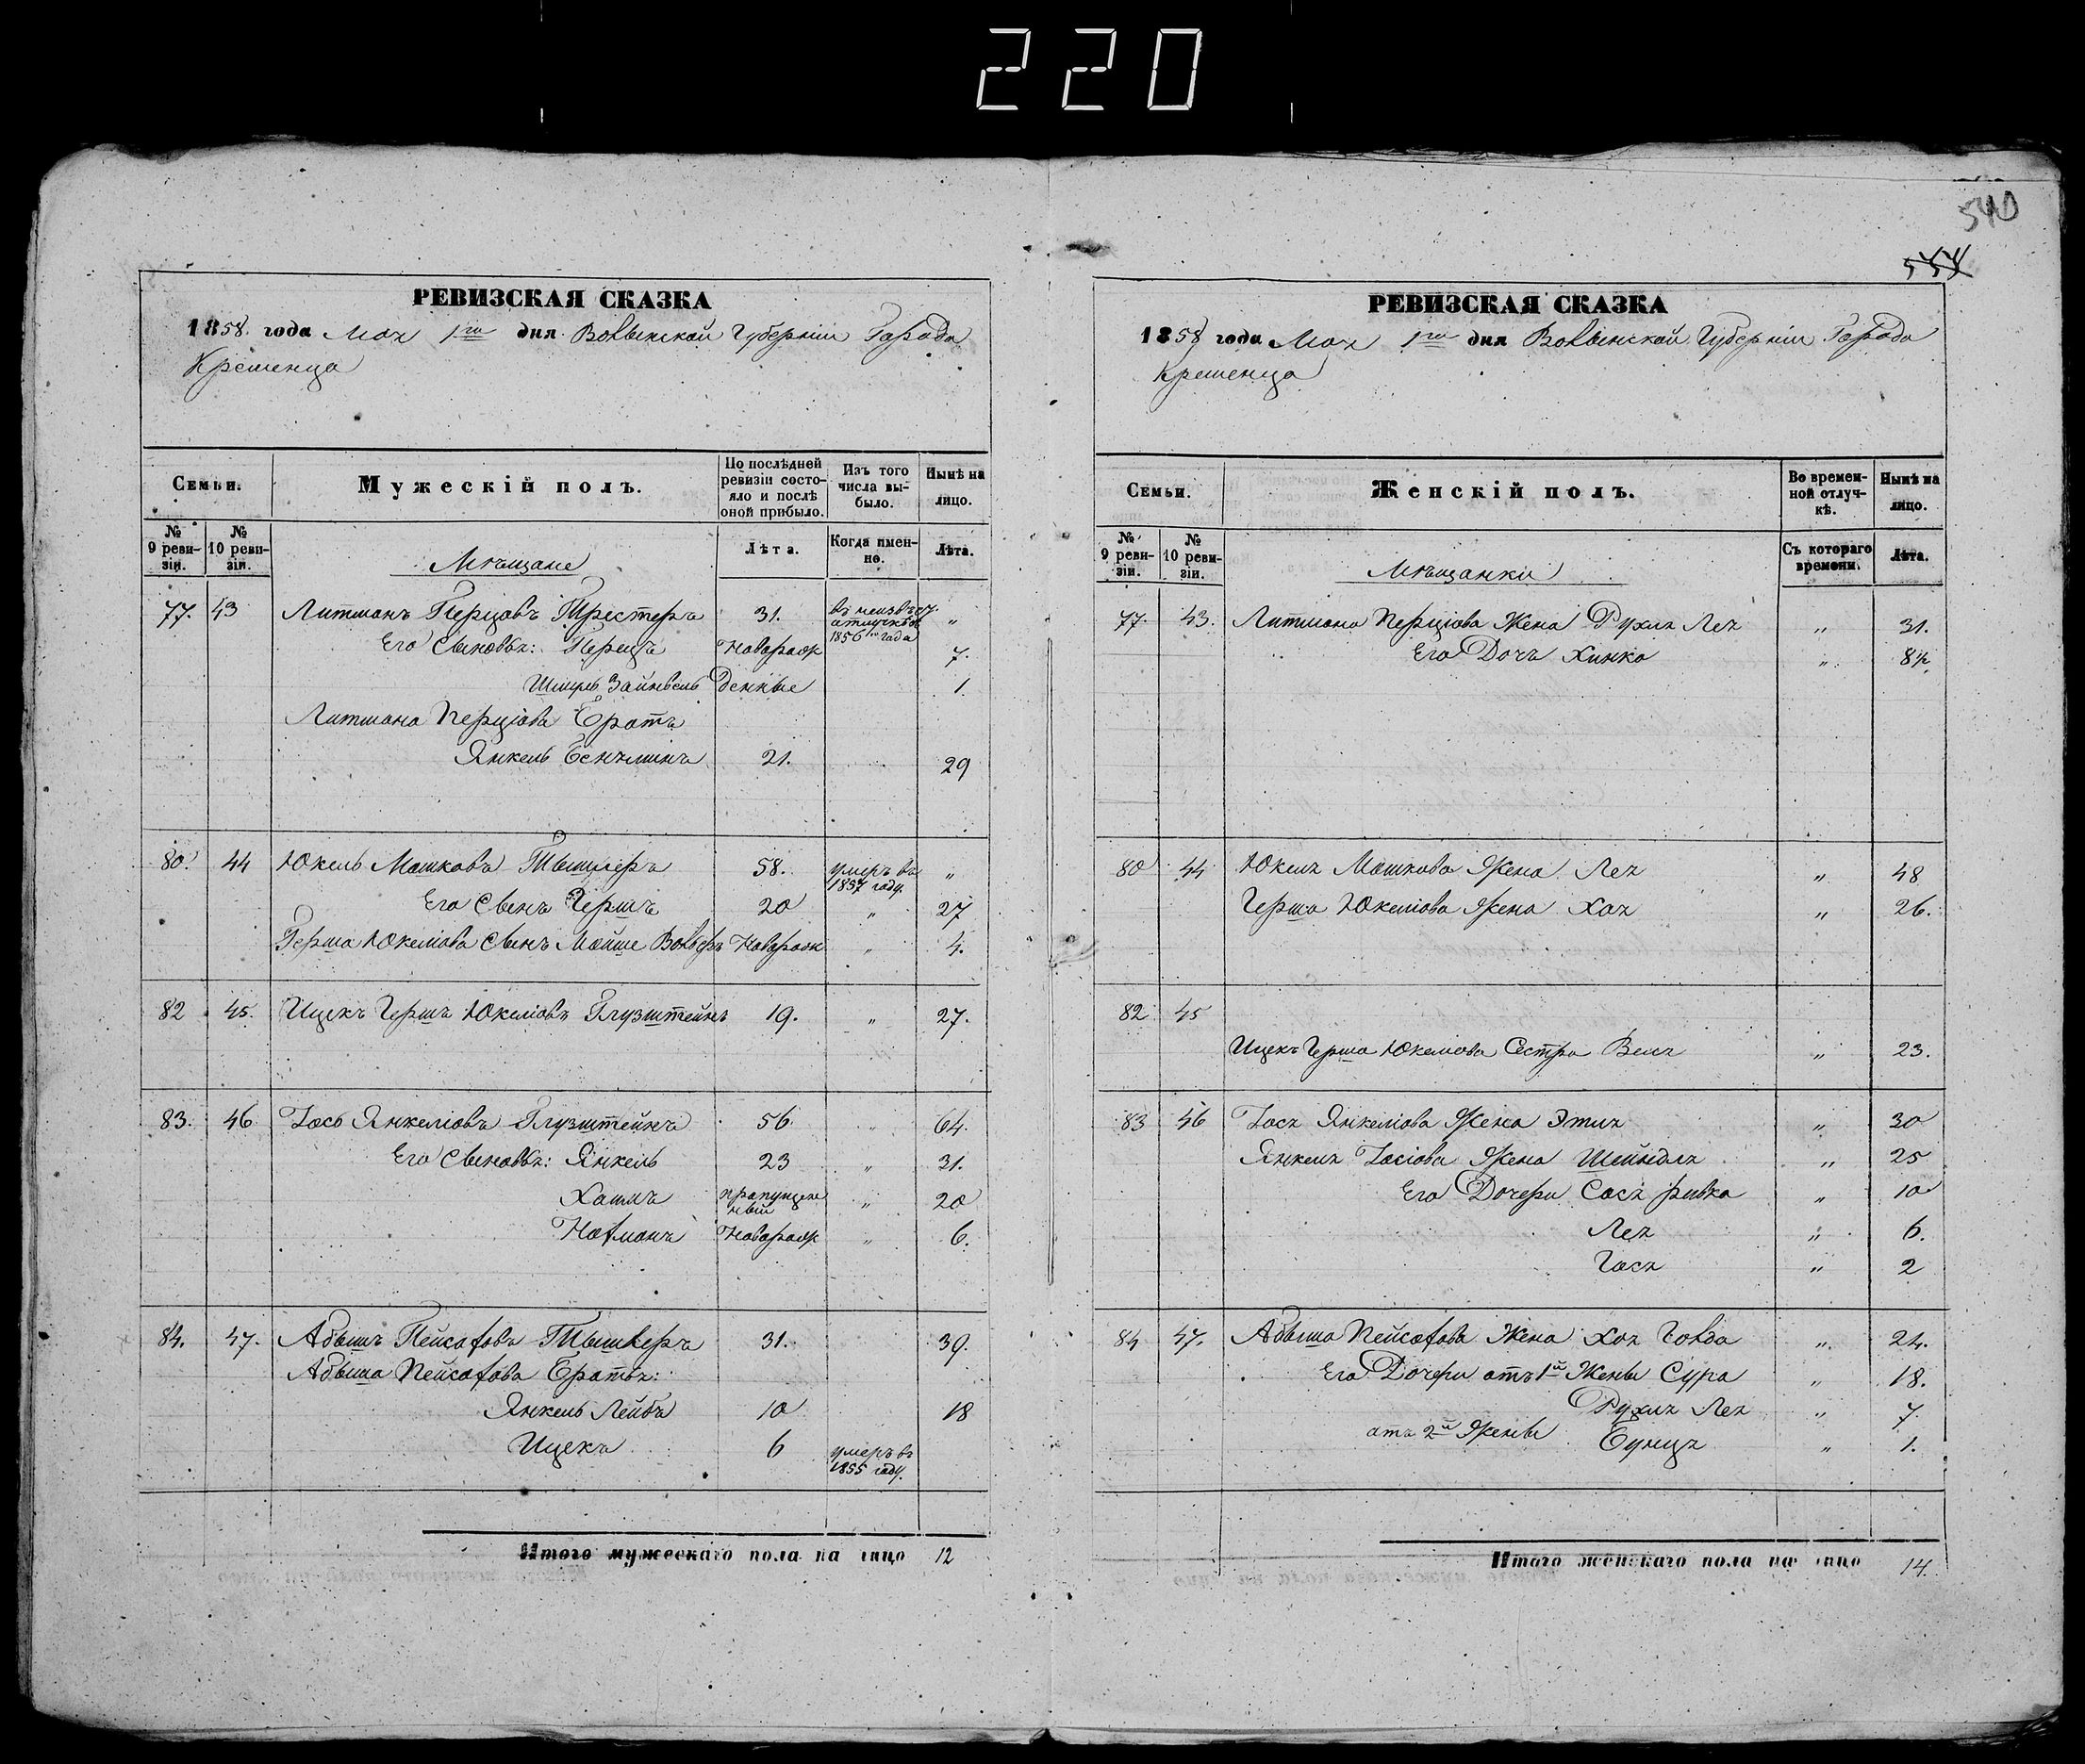 220
540
554
РЕВИЗСКАЯ СКАЗКА
1858 года Мая 1го дня Волынской Губерніи Города
Кременца
Семьи.
Мужескій полъ.
По послѣдней ревизіи состояло и послѣ оной прибыло.
Изъ того числа выбыло.
Нынѣ на лицо.
№ 9 ревизіи.
№ 10 ревизіи.
Мѣщане
Лѣта.
Когда именно.
Лѣта.
77. 43 Литманъ Перцовъ Трестеръ 31. въ неизвѣст. отлучкѣ съ 1856го года "
Его Сыновья: Перецъ Новорож 7.
Шмуль Зайнвель денные 1
Литмана Перціова Братъ
Янкель Бенъминъ 21. 29
80. 44 Юкель Мошковъ Тышлеръ 58. умеръ въ 1857 году. "
Его Сынъ Гершъ 20 " 27
Герша Юкеліова Сынъ Мойше Вольфъ Новорож " 4.
82 45. Ицекъ Гершъ Юкеліовъ Глузштейнъ 19. " 27.
83. 46 Іось Янкеліовъ Глузштейнъ 56. " 64.
Его Сыновья: Янкель 23 " 31.
Хаимъ пропущенный " 20
Нотманъ Новорож " 6.
84. 47. Абышъ Пейсаховъ Тышлеръ 31. 39.
Абыша Пейсахова Братья:
Янкель Лейбъ 10 18
Ицекъ 6 умеръ въ 1855 году.
Итого мужескаго пола на лицо 12
РЕВИЗСКАЯ СКАЗКА
1858 года Мая 1го дня Волынской Губерніи Города
Кременца
Семьи.
Женскій полъ.
Во временной отлучкѣ.
Нынѣ на лицо.
№ 9 ревизіи.
№ 10 ревизіи.
Мѣщанки
Съ котораго времени.
Лѣта.
77. 43. Литмана Перціова Жена Рухля Лея " 31.
Его Дочь Хинка " 8½
80 44 Юкеля Мошкова Жена Лея " 48
Герша Юкеліова Жена Хая " 26.
82 45
Ицекъ Герша Юкеліова Сестра Веля " 23.
83 46 Іося Янкеліова Жена Этля " 30
Янкеля Іосіова Жена Шейндля " 25
Его Дочери Сося ривка " 10
Лея " 6.
Гася " 2
84 47. Абыша Пейсахова Жена Хая Голда " 24.
Его Дочери отъ 1й Жены Сура " 18.
Рухля Лея " 7.
отъ 2й Жены Бунця " 1.
Итого женскаго пола на лицо 14.